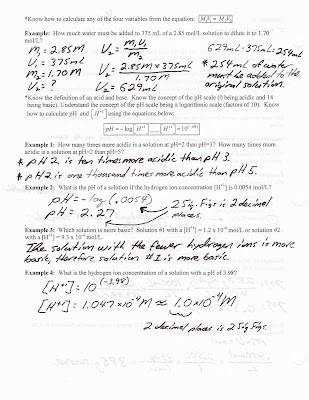 *Know how to calculate any of the four variables from the equation: M₁V₁ = M₂V₂
Example: How much water must be added to 375 mL of a 2.85 mol/L solution to dilute it to 1.70
mol/L?
M₁ = 2.85M V₂ = M₁V₁ / M₂ 629mL - 375mL = 254mL
V₁ = 375mL * 254mL of water
M₂ = 1.70M V₂ = 2.85M x 375mL / 1.70M must be added to the
V₂ = ? V₂ = 629mL original solution.
*Know the definition of an acid and base. Know the concept of the pH scale (0 being acidic and 14
being basic). Understand the concept of the pH scale being a logarithmic scale (factors of 10). Know
how to calculate pH and [H⁺¹] using the equations below:
pH = -log[H⁺¹] [H⁺¹] = 10^(-pH)
Example 1: How many times more acidic is a solution at pH=2 than pH=3? How many times more
acidic is a solution at pH=2 than pH=5?
* pH 2 is ten times more acidic than pH 3.
* pH 2 is one thousand times more acidic than pH 5.
Example 2: What is the pH of a solution if the hydrogen ion concentration [H⁺¹] is 0.0054 mol/L?
pH = -log (.0054) 2 Sig. Figs is 2 decimal
pH = 2.27 places.
Example 3: Which solution is most basic? Solution #1 with a [H⁺¹] = 1.2 x 10⁻⁴ mol/L or solution #2
with a [H⁺¹] = 9.5 x 10⁻⁴ mol/L.
The solution with the fewer hydrogen ions is more
basic, therefore solution #1 is more basic.
Example 4: What is the hydrogen ion concentration of a solution with a pH of 3.98?
[H⁺¹] = 10^(-3.98)
[H⁺¹] = 1.047 x 10⁻⁴ M ≈ 1.0 x 10⁻⁴ M
2 decimal places is 2 Sig Figs.